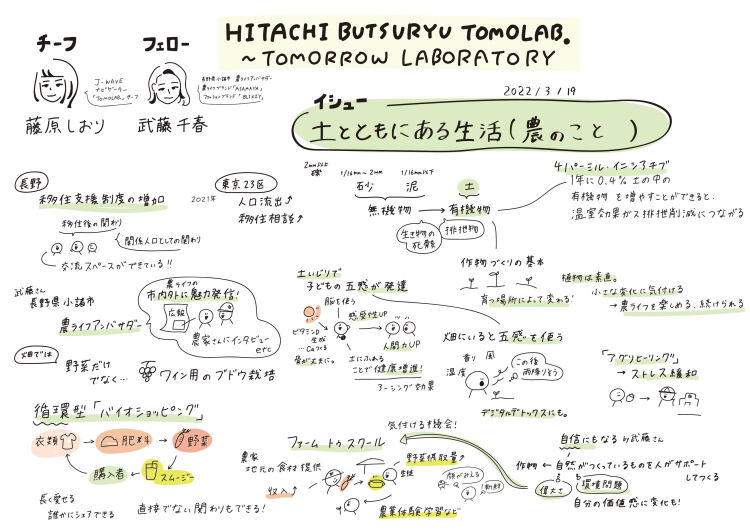 HITACHI BUTSURYU TOMOLAB.
～TOMORROW LABORATORY
チーフ
フェロー
J-WAVE
ナビゲーター
「TOMOLAB.」チーフ
長野県小諸市 農ライフアンバサダー
農ライフブランド「AYAMAYA」
ファッションブランド「BLTXZY」
藤原しおり
武藤千春
2022/3/19
イシュー
土とともにある生活(農のこと )
長野
移住支援制度の増加
移住後の関わり
関係人口としての関わり
交流スペースができている!!
2021年
東京23区
人口流出↑
移住相談↑
2mm以上
礫
1/16mm～2mm
砂
1/16mm以下
泥
無機物
土
有機物
生き物の
死骸
排泄物
4パーミル・イニシアチブ
1年に0.4%土の中の
有機物を増やすことができると、
温室効果ガス排出削減につながる
武藤さん
長野県小諸市
農ライフアンバサダー
農ライフの
市内外に魅力発信!
広報
農家さんにインタビュー
etc
畑では
野菜だけ
でなく…
ワイン用のブドウ栽培
土いじりで
子どもの五感が発達
脳を使う
感受性UP
ビタミンD
生成
…Caつくる
骨が丈夫に。
人間力UP
土にふれる
ことで健康増進!
アーシング効果
作物づくりの基本
育つ場所によって変わる!
植物は素直。
小さな変化に気付ける
→農ライフを楽しめる、続けられる
畑にいると五感を使う
香り
風
温度
この後
雨降りそう
デジタルデトックスにも。
「アグリヒーリング」
→ストレス緩和
循環型「バイオショッピング」
衣類
肥料
野菜
スムージー
購入者
長く愛せる
誰かにシェアできる
直接でない関わりもできる!
気付ける機会!
ファーム トゥ スクール
農家
地元の食材提供
収入↑
野菜摂取量↑
生徒
顔がみえる
新鮮
農業体験学習など
自信にもなる by武藤さん
作物 ← 自然がつくっているものを人がサポート
してつくる
偉大さ
環境問題
自分の価値感に変化も!